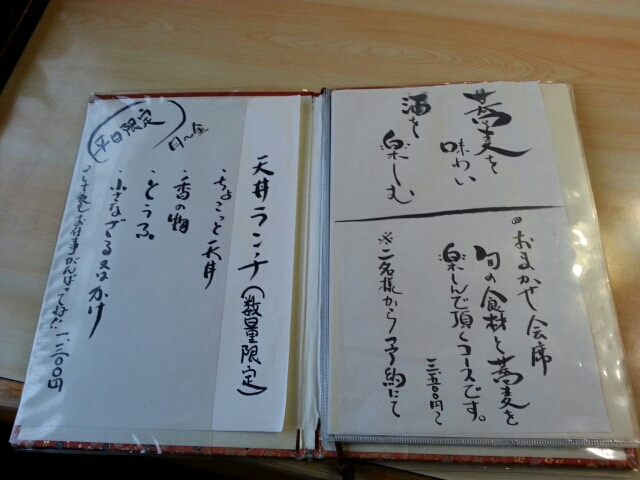 蕎麦を
味わい
酒を
楽しむ
おまかせ会席
旬の食材と蕎麦を
楽しんで頂くコースです。
三五〇〇円〜
※二名様から予約にて
平日限定
月〜金
天丼ランチ（数量限定）
・ちょこっと天丼
・香の物
・とうふ
・小さなざる又はかけ
お仕事がんばってね!!
一、三〇〇円